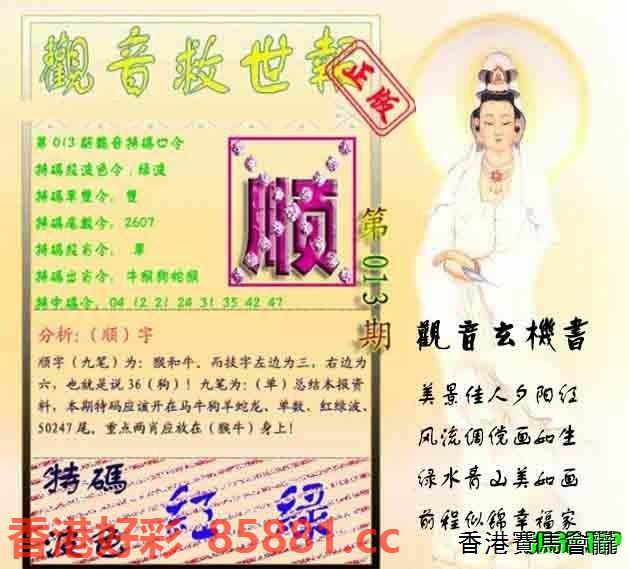 觀音救世報
正版
第013期觀音特碼口令
特碼段波色令，綠波
特碼單雙令，雙
特碼尾數令，2607
特碼段肖令，單
特碼出肖令，牛猴狗蛇猴
特中碼令，04 12 21 24 31 35 42 47
順
第013期
分析:（順）字
顺字（九笔）为：猴和牛。而按字左边为三，右边为
六，也就是说36（狗）！九笔为：（单）总结本报资
料，本期特码应该开在马牛狗羊蛇龙、单数、红绿波、
50247尾，重点两肖应放在（猴牛）身上！
特碼
波色
红 绿
觀音玄機書
美景佳人夕阳红
风流倜傥画如生
绿水青山美如画
前程似锦幸福家
香港好彩 85881.cc
香港賽馬會